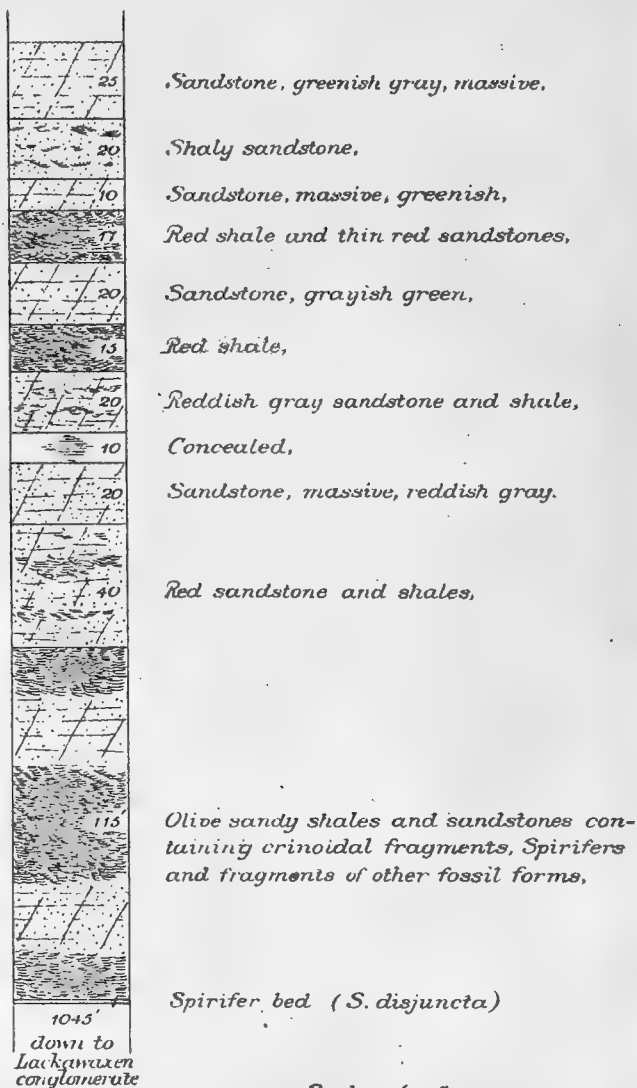 25 Sandstone, greenish gray, massive,
20 Shaly sandstone,
10 Sandstone, massive, greenish,
17 Red shale and thin red sandstones,
20 Sandstone, grayish green,
15 Red shale,
20 Reddish gray sandstone and shale,
10 Concealed,
20 Sandstone, massive, reddish gray.
40 Red sandstone and shales,
115' Olive sandy shales and sandstones con-
taining crinoidal fragments, Spirifers
and fragments of other fossil forms,
Spirifer bed (S. disjuncta)
1045'
down to
Lackawaxen
conglomerate